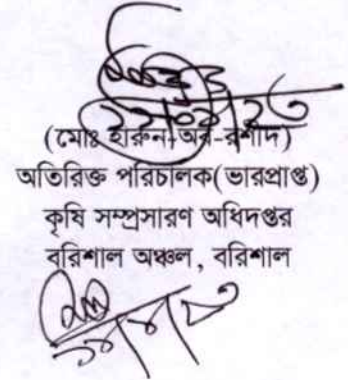 (মোঃ হারুন-অর-রশীদ)
অতিরিক্ত পরিচালক(ভারপ্রাপ্ত)
কৃষি সম্প্রসারণ অধিদপ্তর
বরিশাল অঞ্চল, বরিশাল